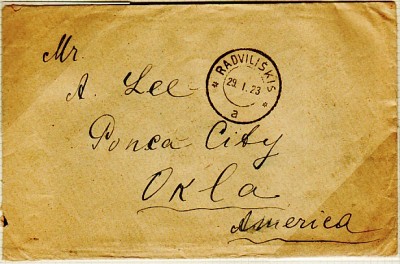 Mr.
A. Lee
RADVILIŠKIS
29.1.23
a
Ponca City
Okla
America